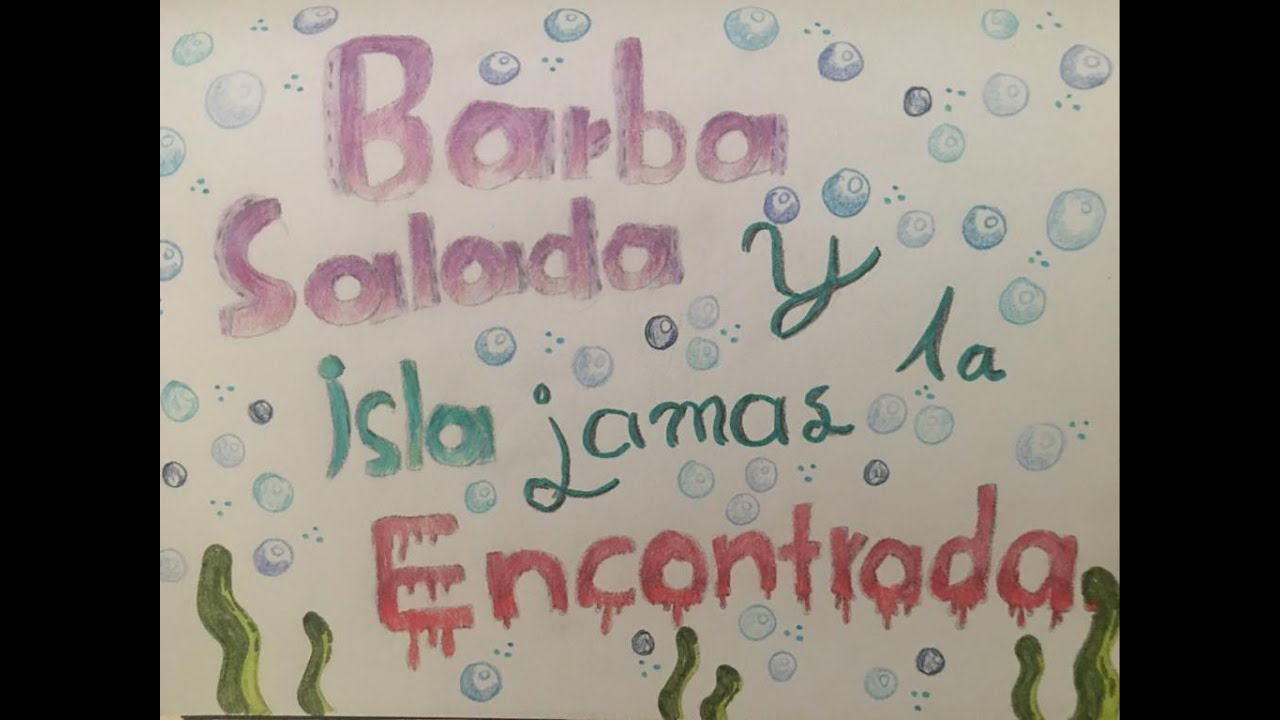 Barba
Salada y
la
isla jamas
Encontrada